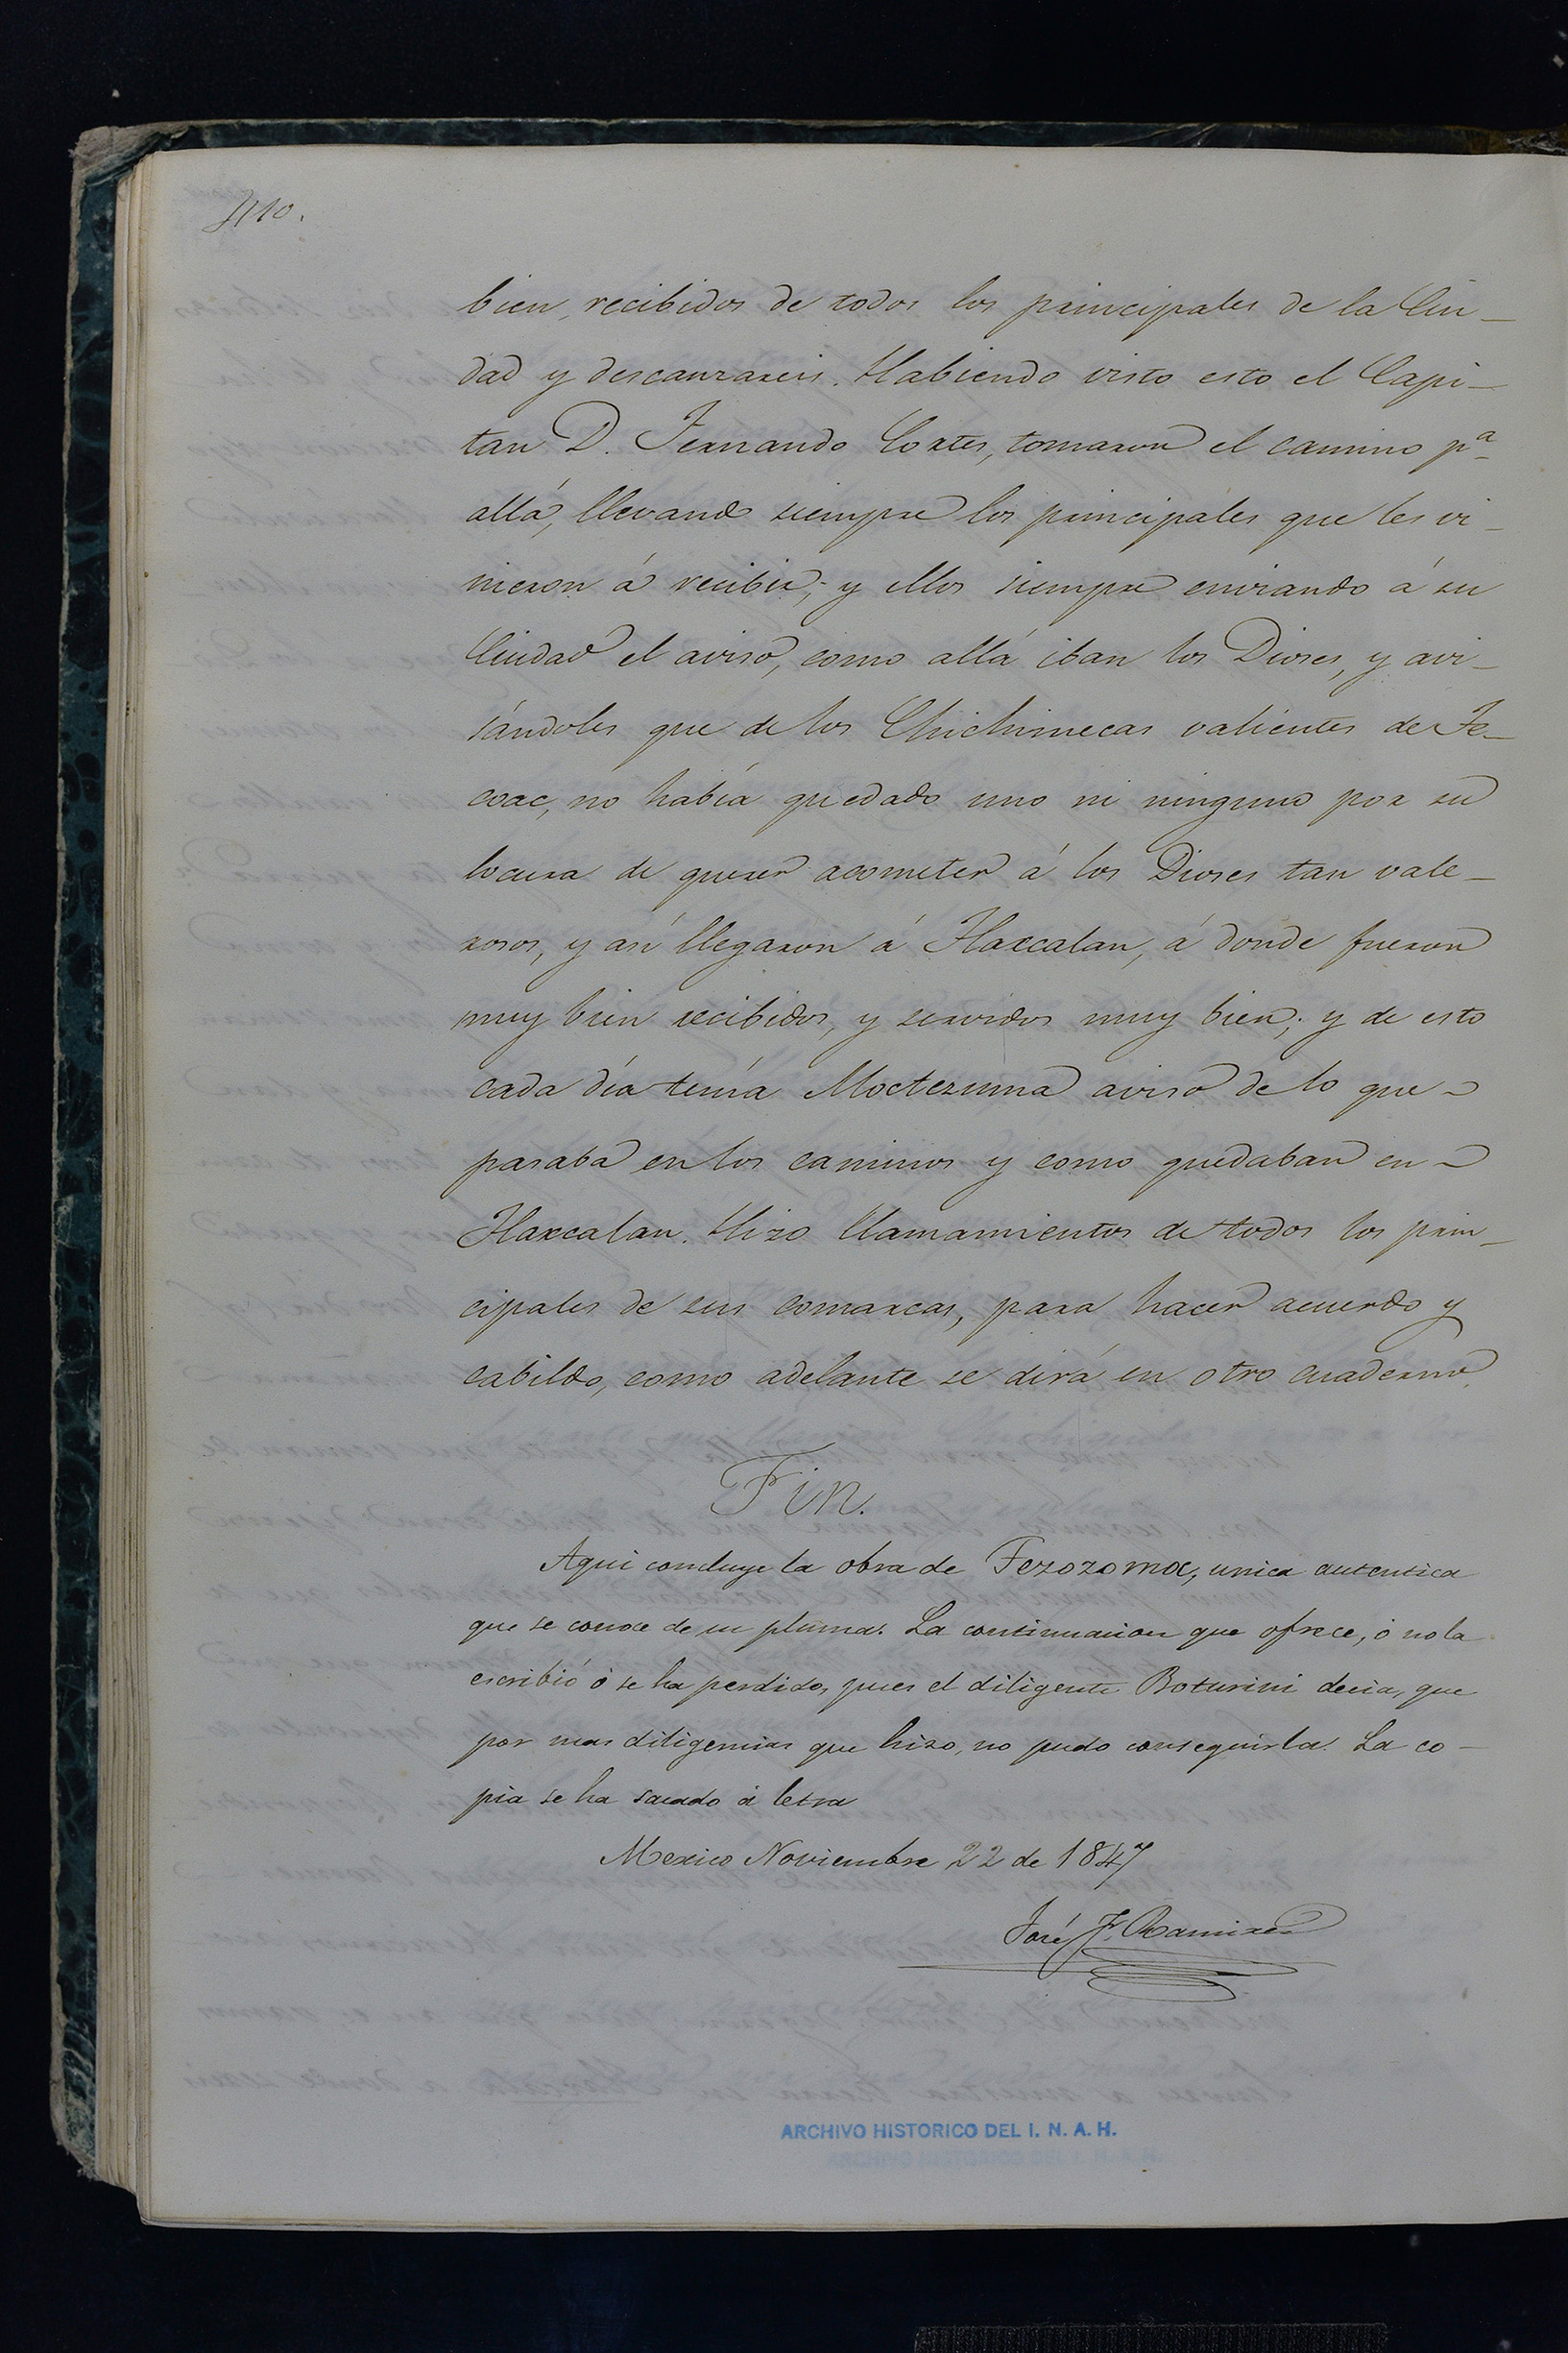 410.
bien, recibidos de todos los principales de la Ciu-
dad y descanzareis. Habiendo visto esto el Capi-
tan D. Fernando Cortes, tomaron el camino pª
allá, llevando siempre los principales que les vi-
nieron á recibir; y ellos siempre enviando á su
Ciudad el aviso, como allá iban los Dioses, y avi-
sándoles que de los Chichimecas valientes de Te-
coac, no había quedado uno ni ninguno por su
locura de querer acometer á los Dioses tan vale-
rosos, y así llegaron á Tlaxcalan, á donde fueron
muy bien recibidos, y servidos muy bien; y de esto
cada día tenía Moctezuma aviso de lo que
pasaba en los caminos y como quedaban en
Tlaxcalan. Hizo llamamientos de todos los prin-
cipales de sus comarcas, para hacer acuerdo y
cabildo, como adelante se dirá en otro cuaderno.
Fin.
Aqui concluye la obra de Tezozomoc, unica autentica
que se conoce de su pluma. La continuacion que ofrece, ó no la
escribió ó se ha perdido, pues el diligente Boturini decia, que
por mas diligencias que hizo, no pudo conseguirla. La co-
pia se ha sacado á letra
Mexico Noviembre 22 de 1847
José F. Ramirez
ARCHIVO HISTORICO DEL I. N. A. H.